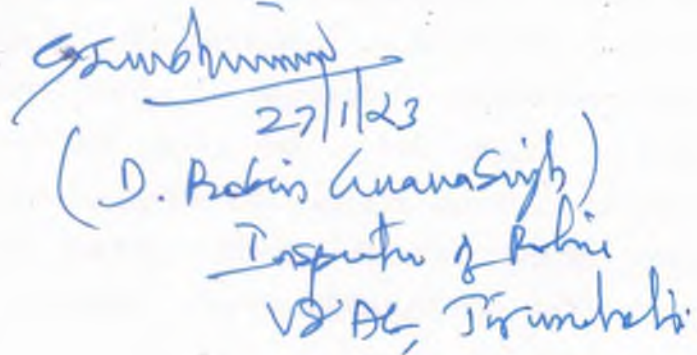 27/1/23
(D. Robin Gnanasingh)
Inspector of Police
V&AC, Tirunelveli.